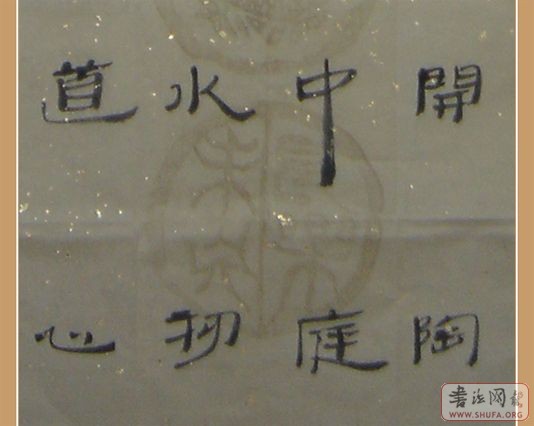 開陶
中庭
水物
道心
书法网报
WWW.SHUFA.ORG